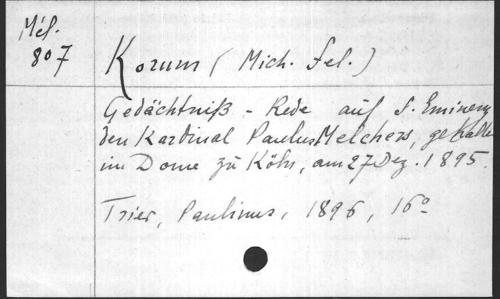 Mél.
807
Korum (Mich. Fel.)
Gedächtniß-Rede auf S. Eminenz
den Kardinal Paulus Melchers, gehalten
im Dome zu Köln, am 27 Dez. 1895.
Trier, Paulinus, 1896, 16°